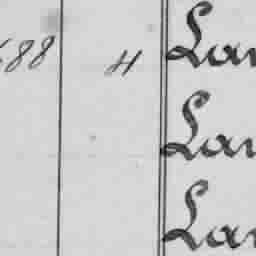 88 4 Lan
Lan
Lan